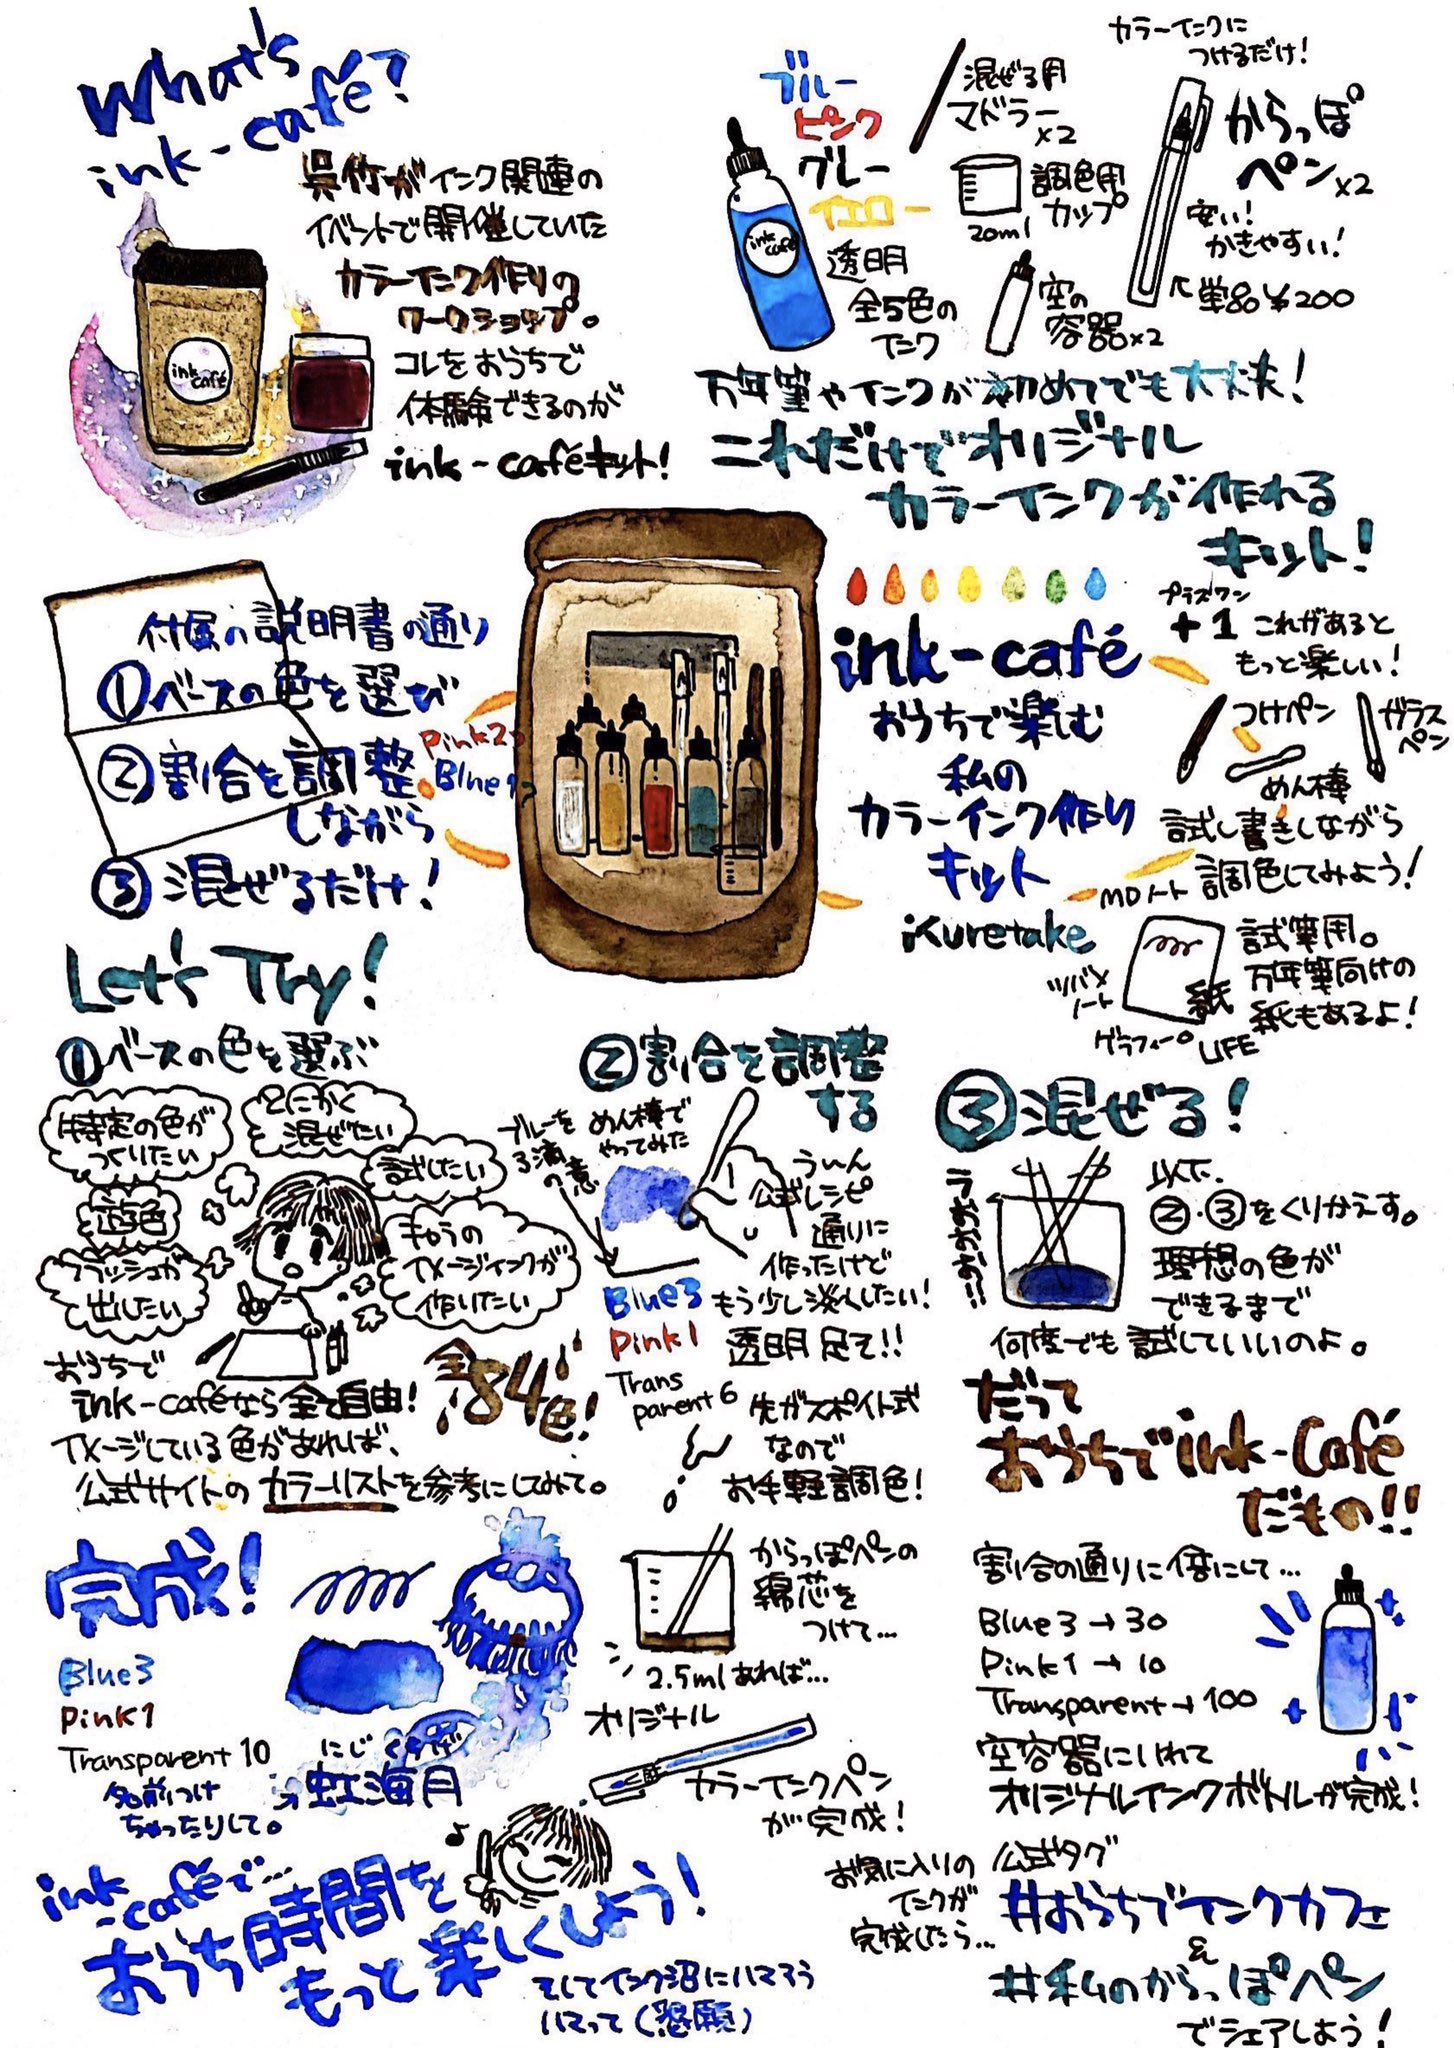 What's
ink-café?
呉竹がインク関連の
イベントで開催していた
カラーインク作りの
ワークショップ。
コレをおうちで
体験できるのが
ink-caféキット!
ink
café
ブルー
ピンク
グレー
イエロー
透明
全5色の
インク
ink
café
混ぜる用
マドラー
×2
調色用
カップ
20ml
空の
容器×2
カラーインクに
つけるだけ!
からっぽ
ペン×2
安い!
かきやすい!
単品¥200
万年筆やインクが初めてでも大丈夫!
これだけでオリジナル
カラーインクが作れる
キット!
付属の説明書の通り
①ベースの色を選び
②割合を調整
しながら
③混ぜるだけ!
Pink2
Blue1
ink-café
おうちで楽しむ
私の
カラーインク作り
キット
Kuretake
プラスワン
+1 これがあると
もっと楽しい!
つけペン
ガラス
ペン
めん棒
試し書きしながら
調色してみよう!
MDノート
ツバメ
ノート
グラフィーロ
LIFE
紙
試筆用。
万年筆向けの
紙もあるよ!
Let's Try!
①ベースの色を選ぶ
特定の色が
つくりたい
とにかく
混ぜたい
試したい
遊色
フラッシュが
出したい
きょうの
イメージインクが
作りたい
おうちで
ink-caféなら全て自由!
全84色!
イメージしている色があれば、
公式サイトのカラーリストを参考にしてみて。
②割合を調整
する
ブルーを
3滴
の意
めん棒で
やってみた
うーん
公式レシピ
通りに
作ったけど
もう少し淡くしたい!
透明足て!!
Blue3
Pink1
Trans
parent6
先がスポイト式
なので
お手軽調色!
③混ぜる!
以下、
②・③をくりかえす。
理想の色が
できるまで
何度でも試していいのよ。
だって
おうちでink-Café
だもの!!
完成!
Blue3
Pink1
Transparent10
名前つけ
ちゃったりして。
にじくらげ
虹海月
からっぽペンの
綿芯を
つけて…
2.5mlあれば…
オリジナル
カラーインクペン
が完成!
割合の通りに倍にして…
Blue3→30
Pink1→10
Transparent→100
空容器にいれて
オリジナルインクボトルが完成!
ink
-caféで…
おうち時間を
もっと楽しくしよう!
そしてインク沼にハマろう
ハマって(懇願)
お気に入りの
インクが
完成したら…
公式タグ
#おうちでインクカフェ
&
#私のからっぽペン
でシェアしよう!